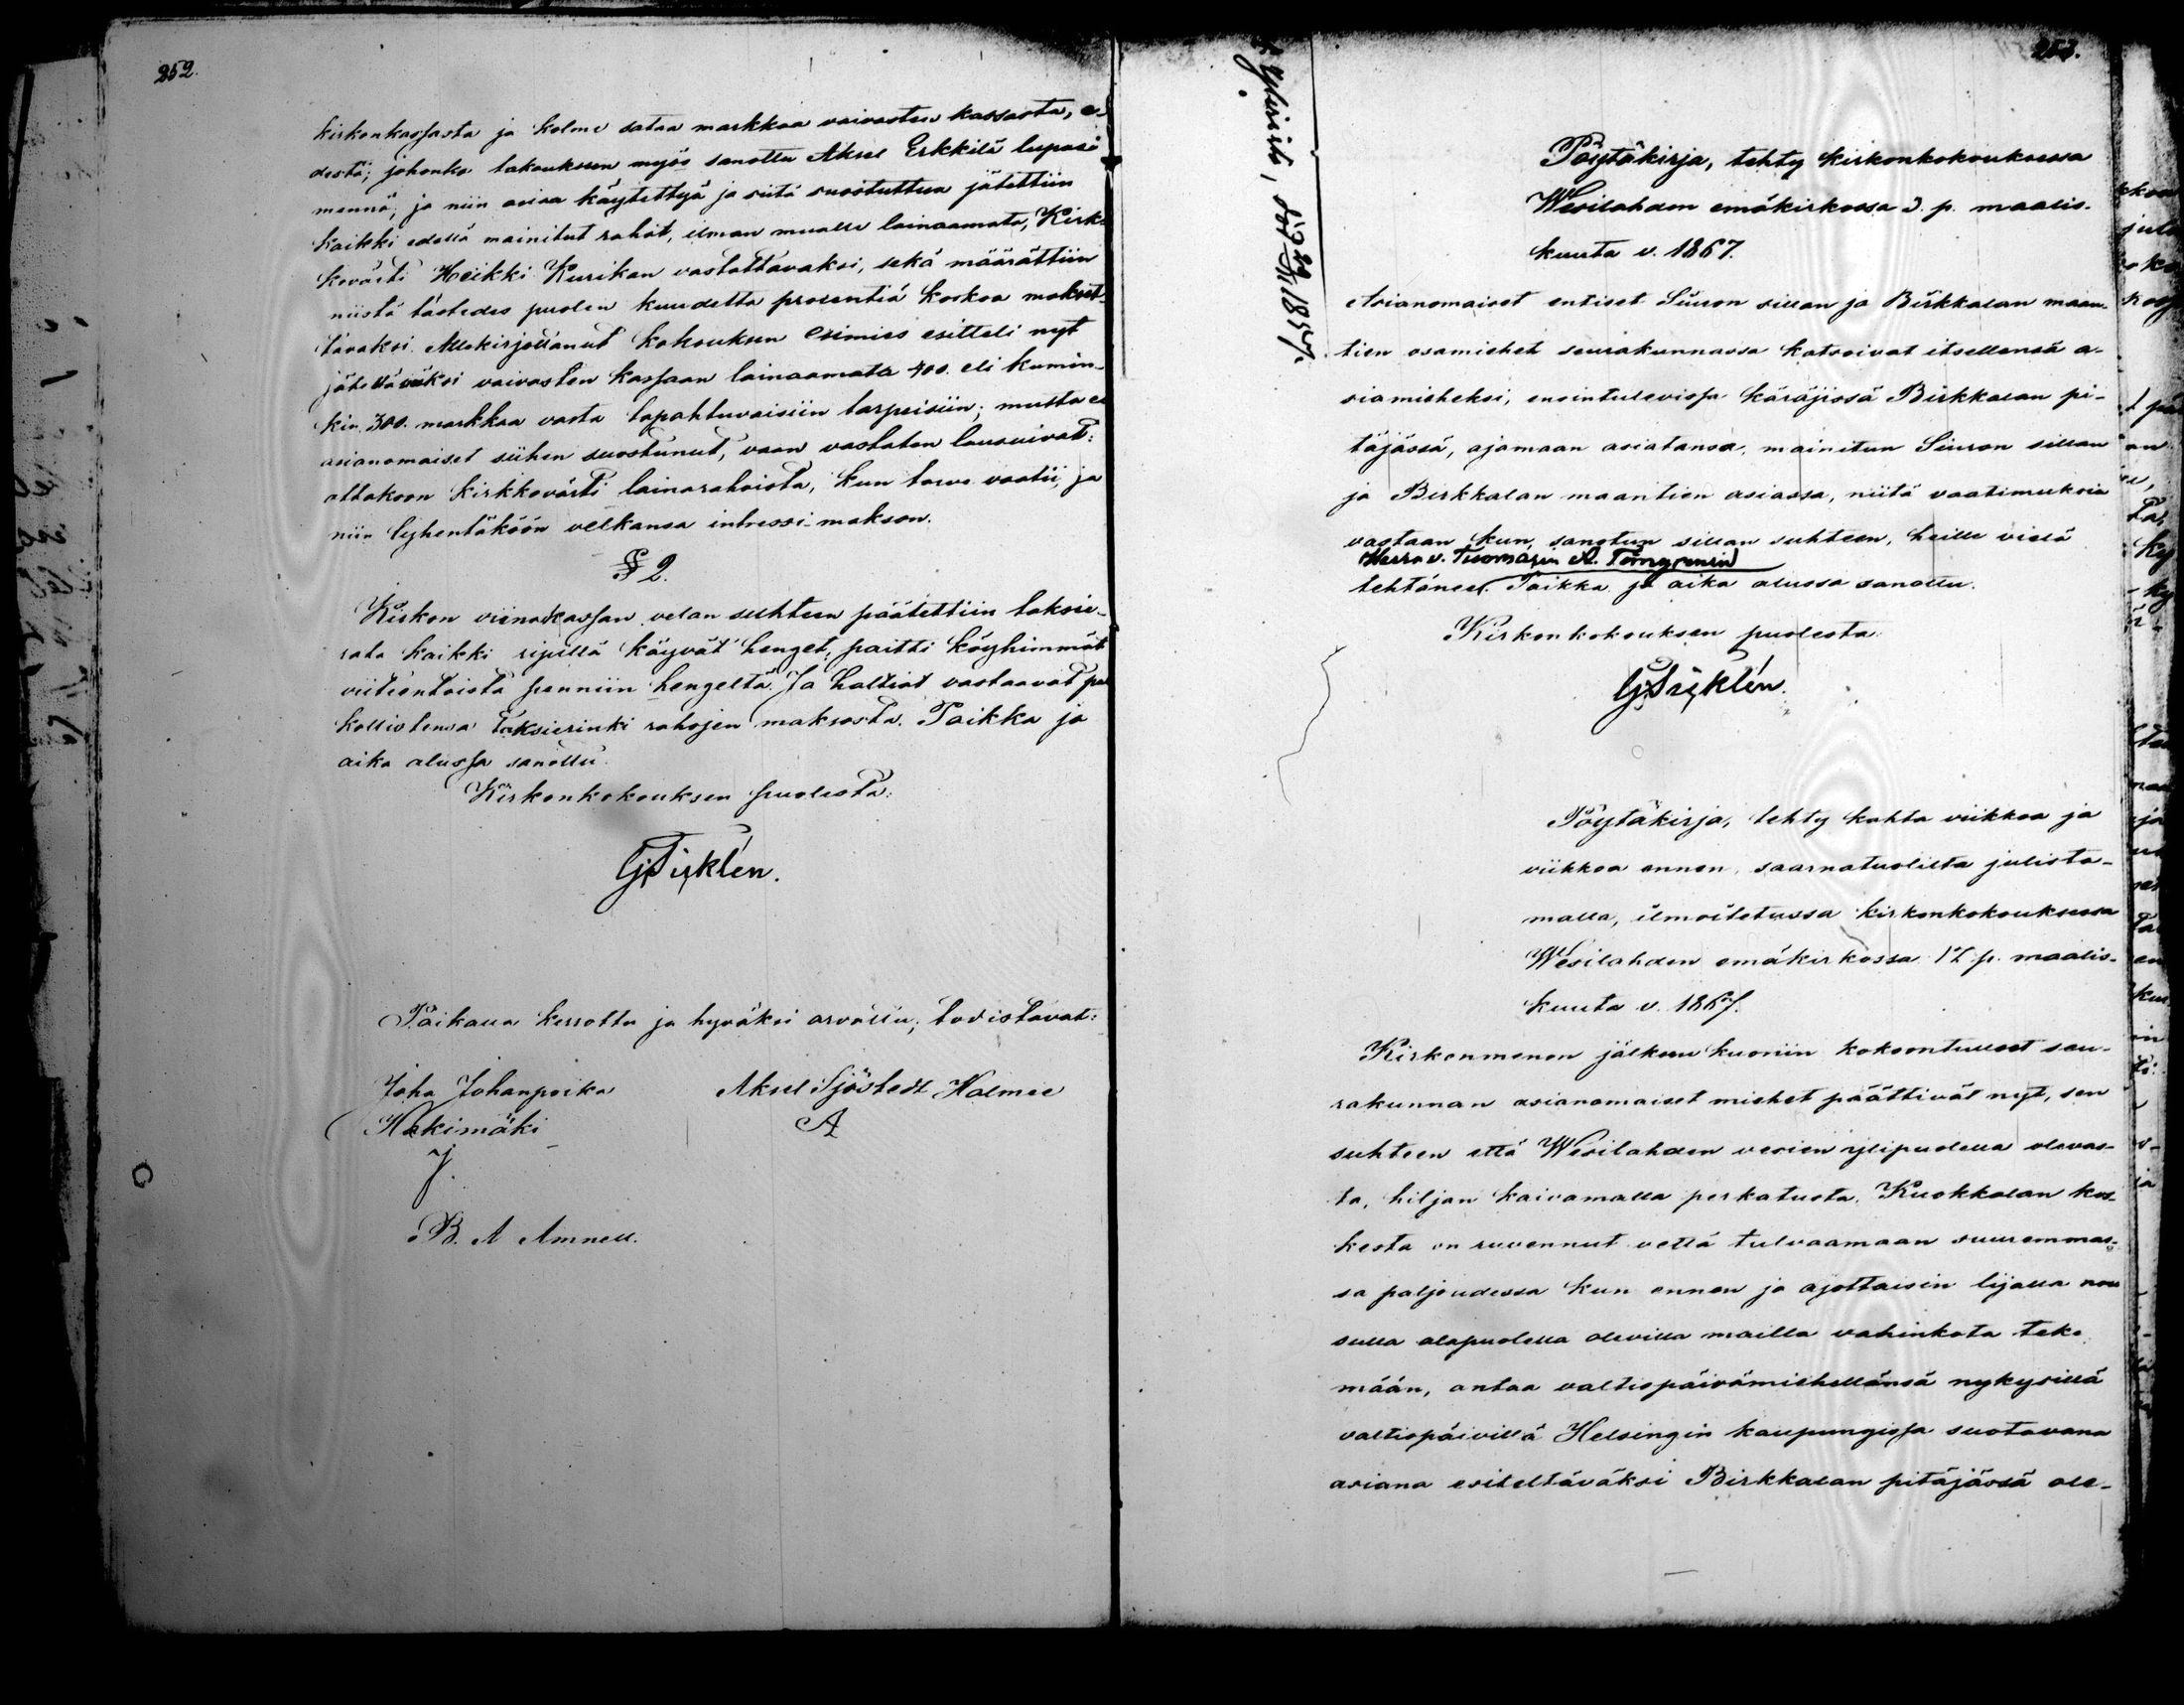 252.
kirkonkassasta ja kolme sataa markkaa vaivasten kassasta, e-
destä; johonka takauksen myös sanottu Aksel Erkkilä lupasi
mennä; ja niin asiaa käytettyä ja siitä suostuttua jätettiin
kaikki edellä mainitut rahat, ilman muualle lainaamata, Kirk-
kovärti Heikki Kurikan vastattavaksi, sekä määrättiin
niistä tästedes puolen kuudetta prosentiä korkoa makset-
tavaksi. Allekirjoittanut kokouksen esimies esitteli nyt
jätettäväksi vaivasten kassaan lainaamata 400. eli kumin-
kin 300. markkaa vasta tapahtuvaisiin tarpeisiin; mutta ei
asianomaiset siihen suostunut, vaan vastaten lausuivat:
ottakoon kirkkovärti lainarahoista, kun tarve vaatii, ja
niin lyhentäköön velkansa intressi-makson.
§ 2.
Kirkon viinakassan velan suhteen päätettiin taksie-
rata kaikki ripillä käyvät henget, paitti köyhimmät
viiteentoista penniin hengeltä. Ja haltiat vastaavat pal
kollistensa taksierinki rahojen maksosta. Paikka ja
aika alussa sanottu.
Kirkonkokouksen puolesta:
G Sirklén.
Paikalla kerrottu ja hyväksi arvattu; todistavat:
Juha Johanpoika Aksel Sjöstedt Halmee
Hakimäki A
J.
B. A Amnell.
253.
Pöytäkirja, tehty kirkonkokouksessa
Wesilahden emäkirkossa 3. p. maalis-
kuuta v. 1867.
Asianomaiset entiset Siuron sillan ja Birkkalan maan-
tien osamiehet seurakunnassa katsoivat itsellensä a-
siamieheksi, ensintulevissa käräjissä Birkkalan pi-
täjässä, ajamaan asiatansa, mainitun Siuron sillan
ja Birkkalan maantien asiassa, niitä vaatimuksia
vastaan kun, sanotun sillan suhteen, heille vielä
Herra v. Tuomarin A. Törngrenin
tehtäneen. Paikka ja aika alussa sanottu.
Kirkonkokouksen puolesta:
G Sirklén.
Pöytäkirja, tehty kahta viikkoa ja
viikkoa ennen, saarnatuolilta julista-
malla, ilmoitetussa kirkonkokouksessa
Wesilahden emäkirkossa 17 p. maalis-
kuuta v. 1867.
Kirkonmenon jälkeen kuoriin kokoontulleet seu-
rakunnan asianomaiset miehet päättivät nyt, sen
suhteen että Wesilahden vesien ylipuolella olevas-
ta, hiljan kaivamalla perkatusta, Kuokkalan kos-
kesta on ruvennut vettä tulvaamaan suuremmas-
sa paljoudessa kun ennen ja ajottaisin lijalla nou
sulla alapuolella olevilla mailla vahinkota teke
mään, antaa valtiopäivämiehellänsä nykysillä
valtiopäivillä Helsingin kaupungissa suotavana
asiana esiteltäväksi Birkkalan pitäjässä ole-